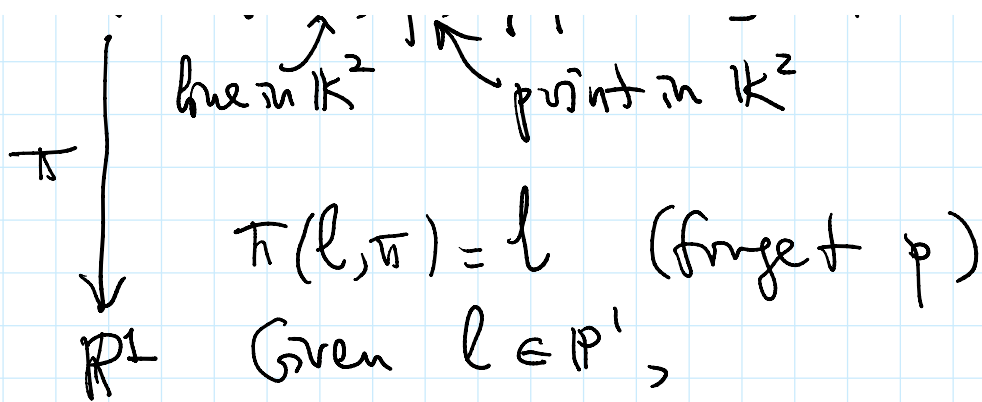 line in 𝕂² point in 𝕂²
π
π(l,π) = l (forget p)
ℙ¹ Given l ∈ ℙ¹,